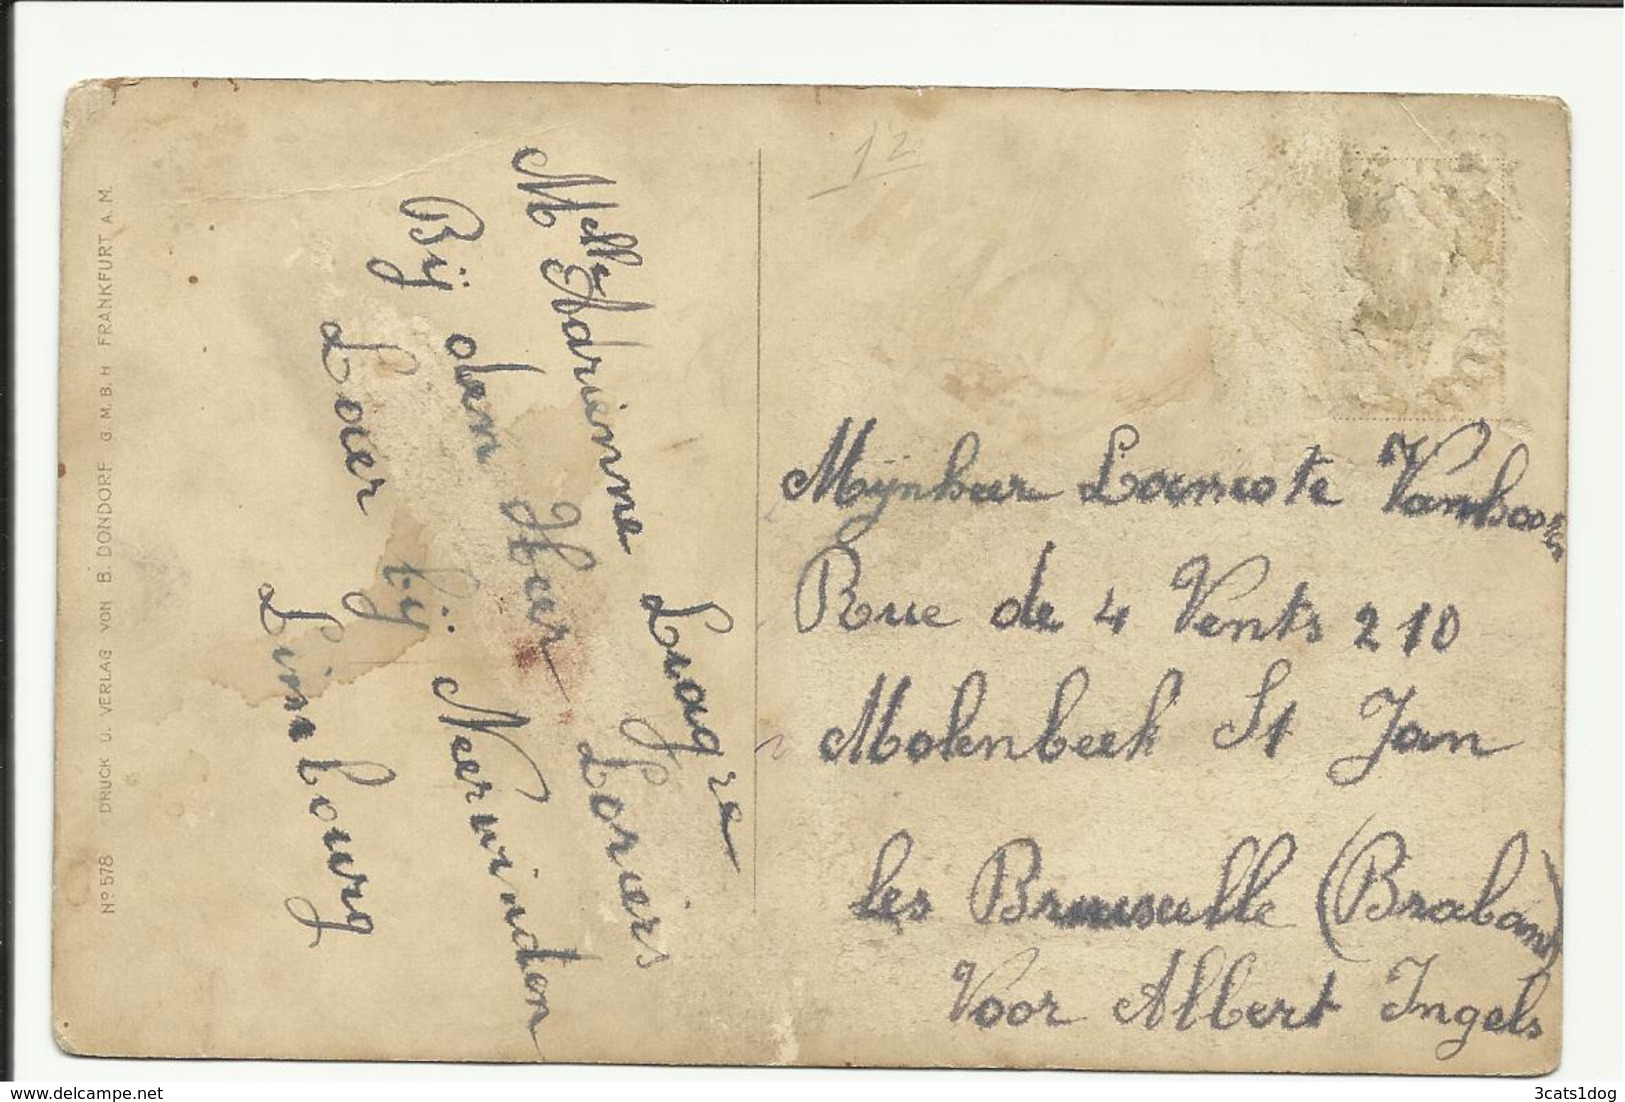 12
Melle Adrienne Lragre
Bij den Heer Loriers
Loer bij Neerwinden
Limbourg
Mijnheer
Rue de 4 Vents 210
Molenbeek St Jan
Les Bruuselle (Braban)
Voor Albert Ingels
No 578 DRUCK U. VERLAG VON B. DONDORF G. M. B. H FRANKFURT A. M.
http://www.delcampe.net
3cats1dog